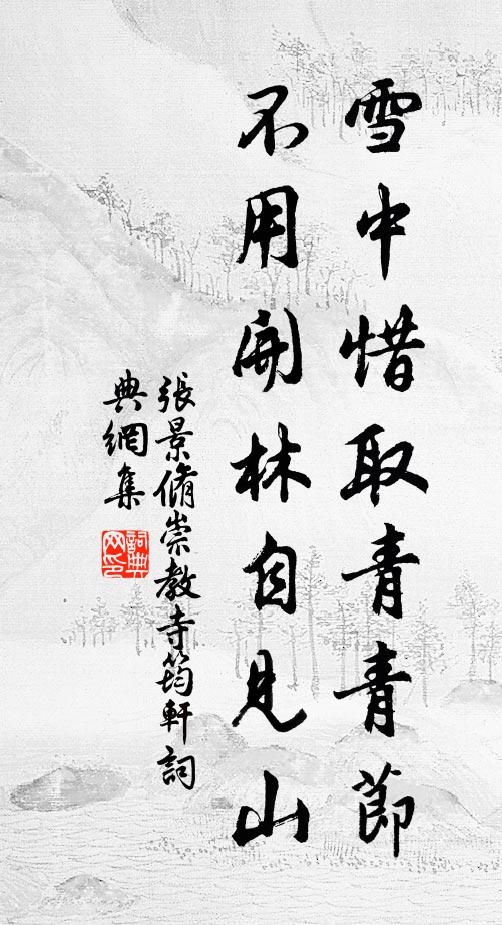 雪中惜取青青節
不用開林自見山
張景脩崇教寺筠軒詞
典網集
詞典網印